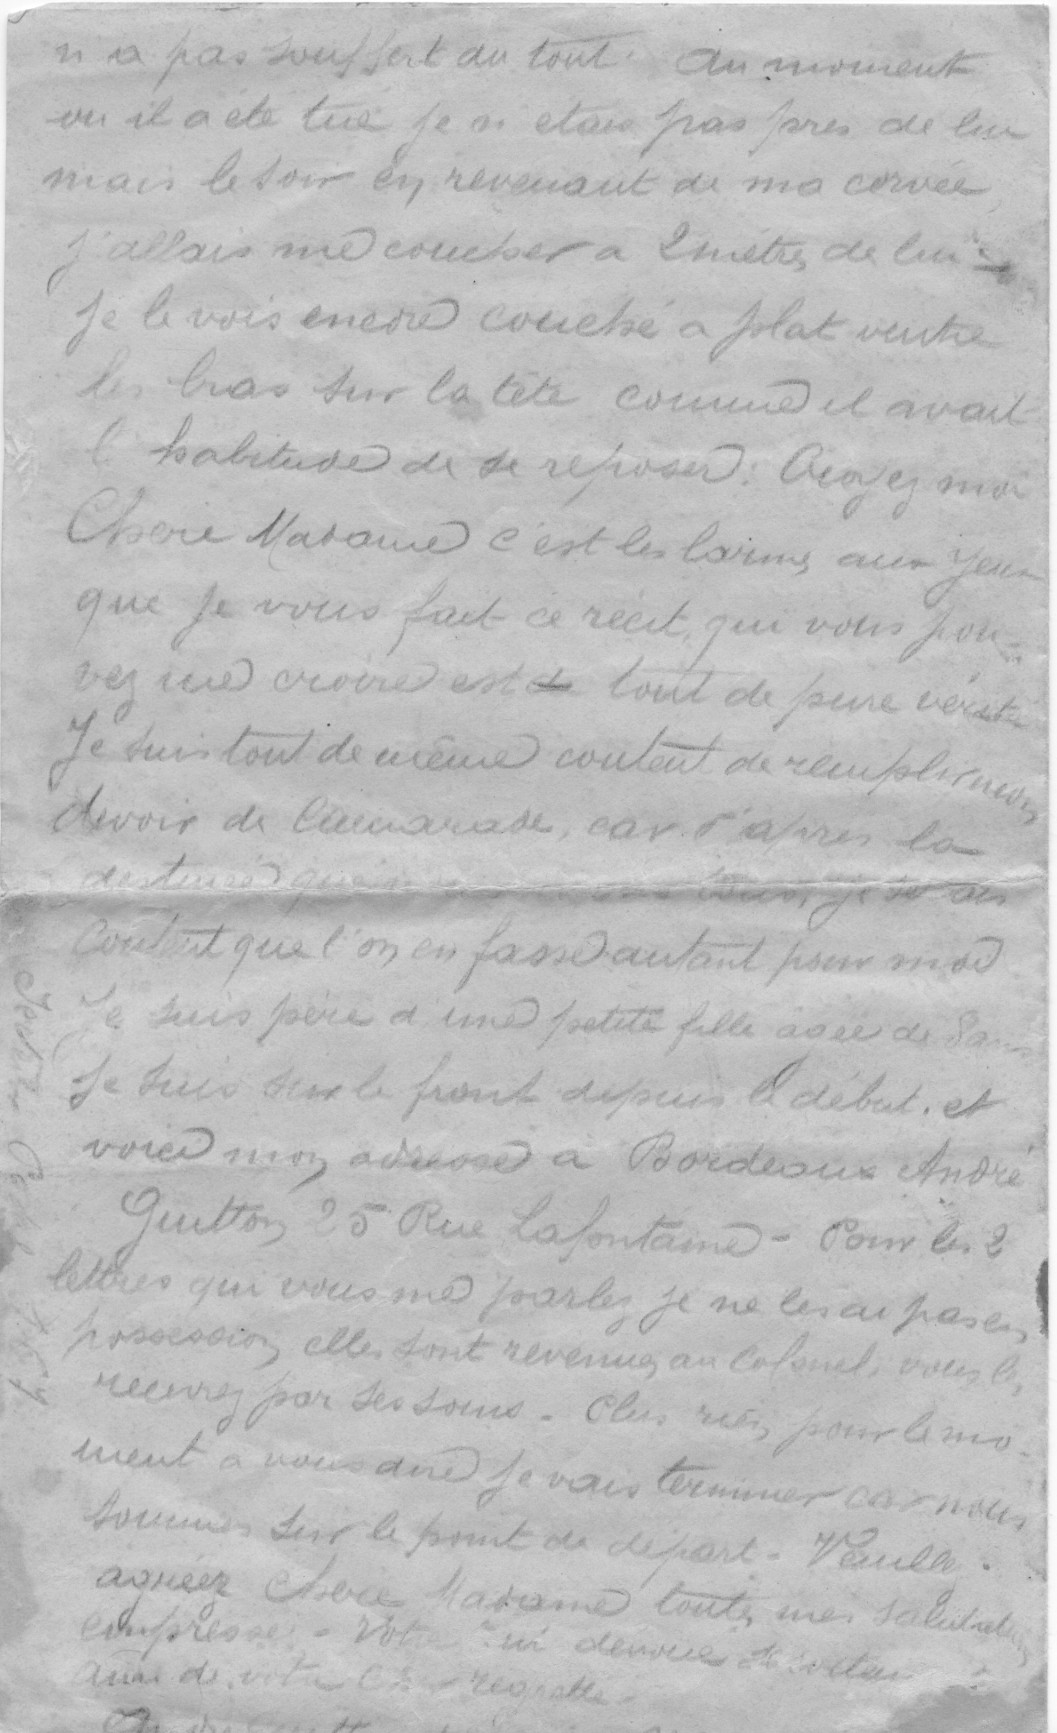 n'a pas souffert du tout. Au moment
ou il a été tué je n'etais pas pres de lui
mais le soir en revenant de ma corvée,
j'allais me coucher a 2 metres de lui
Je le vois encore couché a plat ventre
les bras sur la tête comme il avait
l'habitude de se reposer : Croyez moi
Chere Madame c'est les larmes aux yeux
que je vous fait ce récit, qui vous pou-
vez me croire est tout de pure vérité
Je suis tout de même content de remplir mon
devoir de Camarade, car d'apres la
destinée que tous, je serais
content que l'on en fasse autant pour moi
Je suis père d'une petite fille agée de ans
Je suis sur le front depuis le début. et
voici mon adresse a Bordeaux André
Guitton 25 Rue Lafontaine - Pour les 2
lettres qui vous me parlez je ne les ai pas en
possession, elles sont revenues au Colonel, vous les
recevrez par ses soins - Plus rien pour le mo-
ment a vous dire je vais terminer car nous
sommes sur le point de départ - Veuillez
agréez Chere Madame toutes mes salutations
empressé - Votre dévoué
ami de votre regretté -